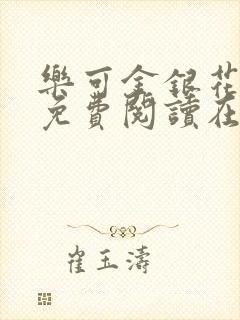 樂可金銀花
免費閱讀在
崔玉濤